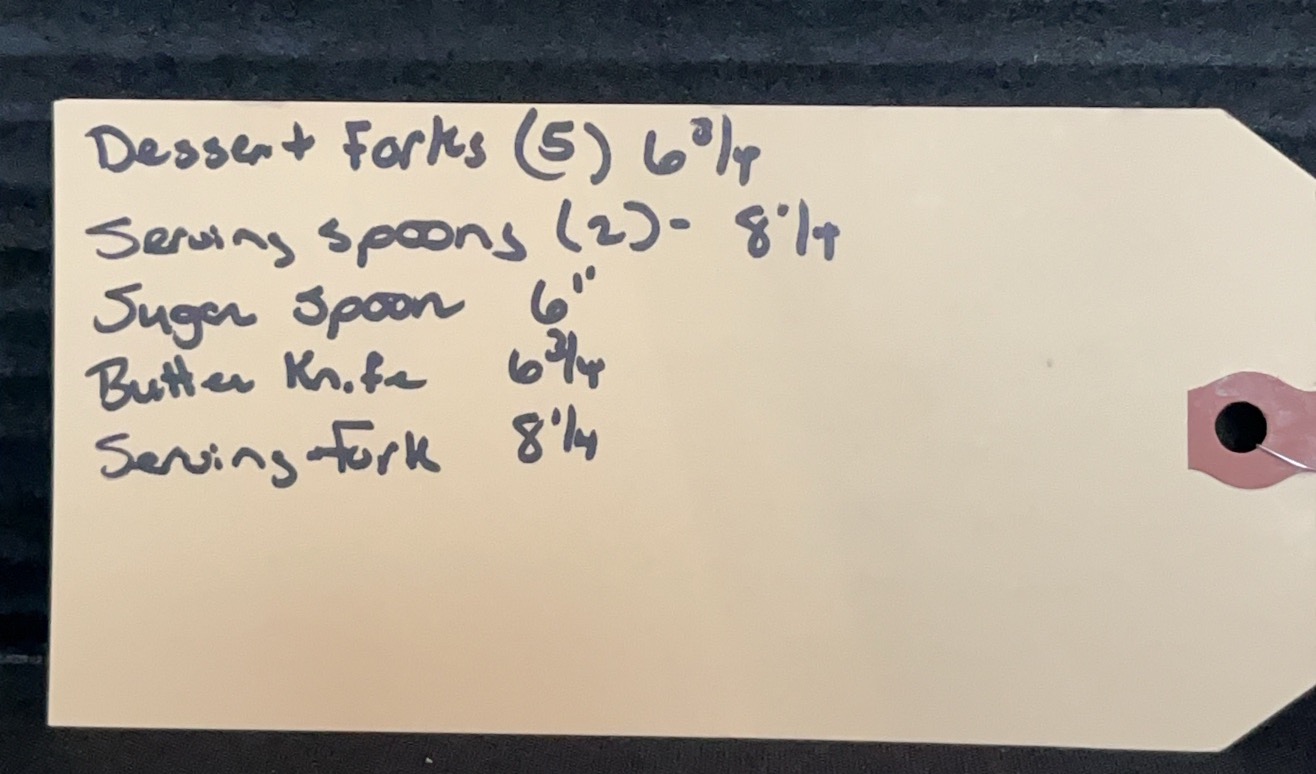 Dessert Forks (5) 6 3/4
Serving spoons (2)- 8 1/4
Sugar Spoon 6"
Butter Knife 6 3/4
Serving Fork 8 1/4